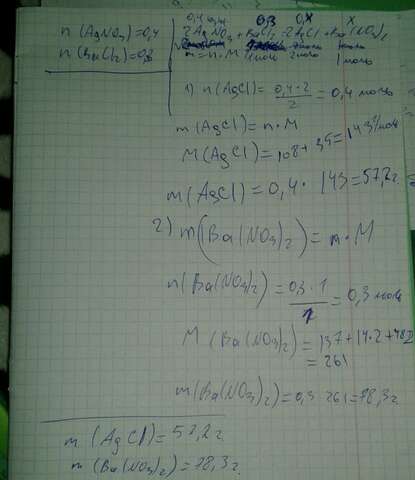 n (AgNO₃)=0,4
n (BaCl₂)=0,3
0,4 0,3 0,X X
2AgNO₃ + BaCl₂ = 2AgCl + Ba(NO₃)₂
m = n · M 1моль 2моль 1моль
1) n (AgCl) = 0,4·2/2 = 0,4 моль
m (AgCl) = n · M
M (AgCl) = 108 + 35 = 143 г/моль
m (AgCl) = 0,4 · 143 = 57,2 г.
2) m (Ba(NO₃)₂) = n · M
n (Ba(NO₃)₂) = 0,3·1/1 = 0,3 моль
M (Ba(NO₃)₂) = 137 + 14·2 + 48·2
= 261
m (Ba(NO₃)₂) = 0,3 · 261 = 78,3 г.
m (AgCl) = 57,2 г.
m (Ba(NO₃)₂) = 78,3 г.